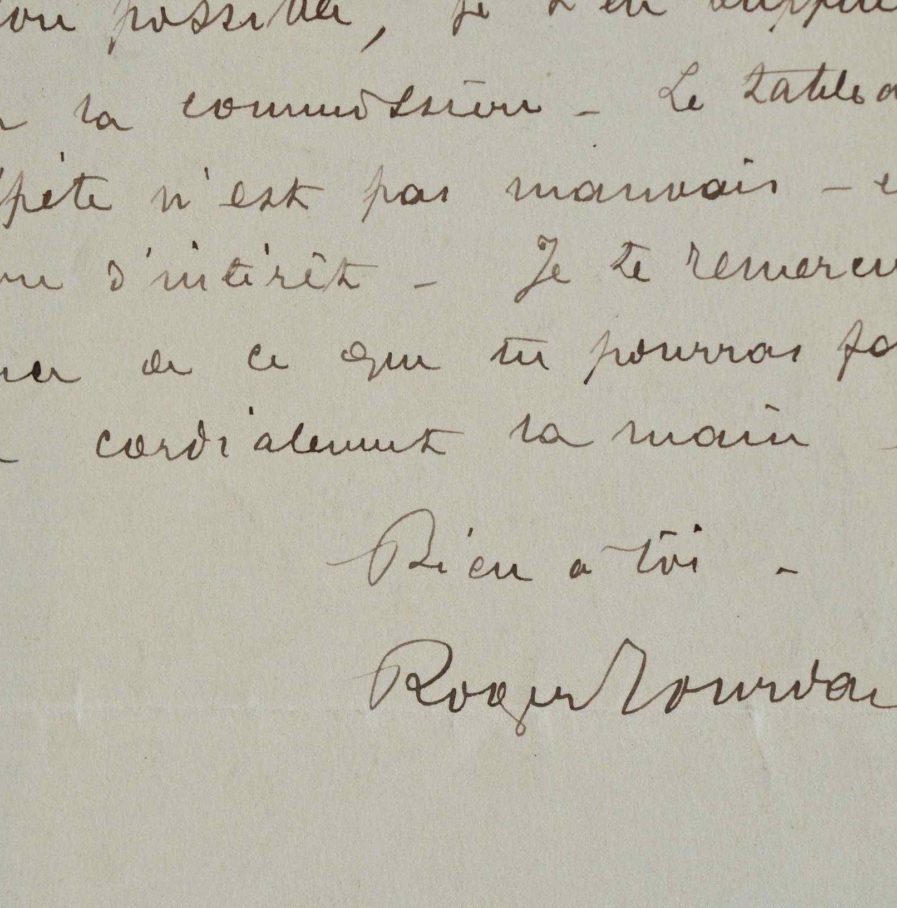 possible, je t'en suppli
la commission - Le tablea
pète n'est pas mauvais - e
d'intérêt - Je te remerci
ce de ce que tu pourras fa
cordialement la main -
Bien à toi -
Roger Jourdai